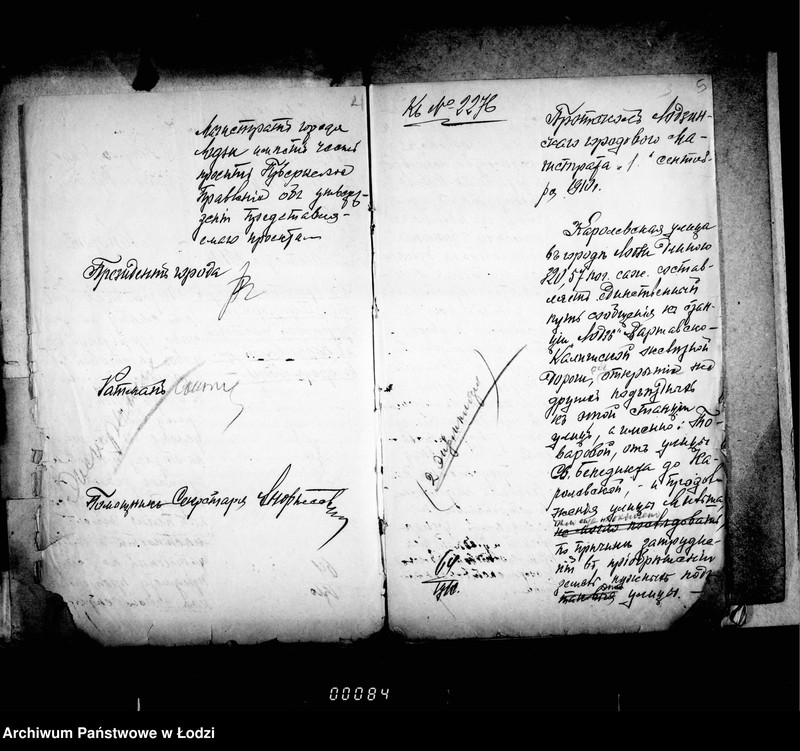 4
Магистратъ города
Лодзи имѣетъ честь
просить Губернское
Правленіе объ утверж-
деніи представля-
емаго проекта
Президентъ города
Ратманъ
Помощникъ Секретаря
5
Къ № 2276
Протоколъ Лодзин-
скаго городового Ма-
гистрата „1“ сентяб-
ря 1910 г.
Каролевская улица
въ городѣ Лодзи длиною
220,57 пог. саж. состав-
ляетъ единственный
путь сообщенія къ стан-
ціи „Лодзь“ Варшавско-
Калишской желѣзной
дороги, открытіе же
другихъ подъѣздныхъ
къ этой станціи
улицъ, а именно: То-
варовой, отъ улицы
Св. Бенедикта до Ка-
ролевской, и продол-
женія улицы Анны,
не могло послѣдовать
по причинѣ затрудне-
ній въ пріобрѣтеніи
земель нужныхъ подъ
эти улицы. —
(2 экземпляра)
64
1910.
00084
Archiwum Państwowe w Łodzi